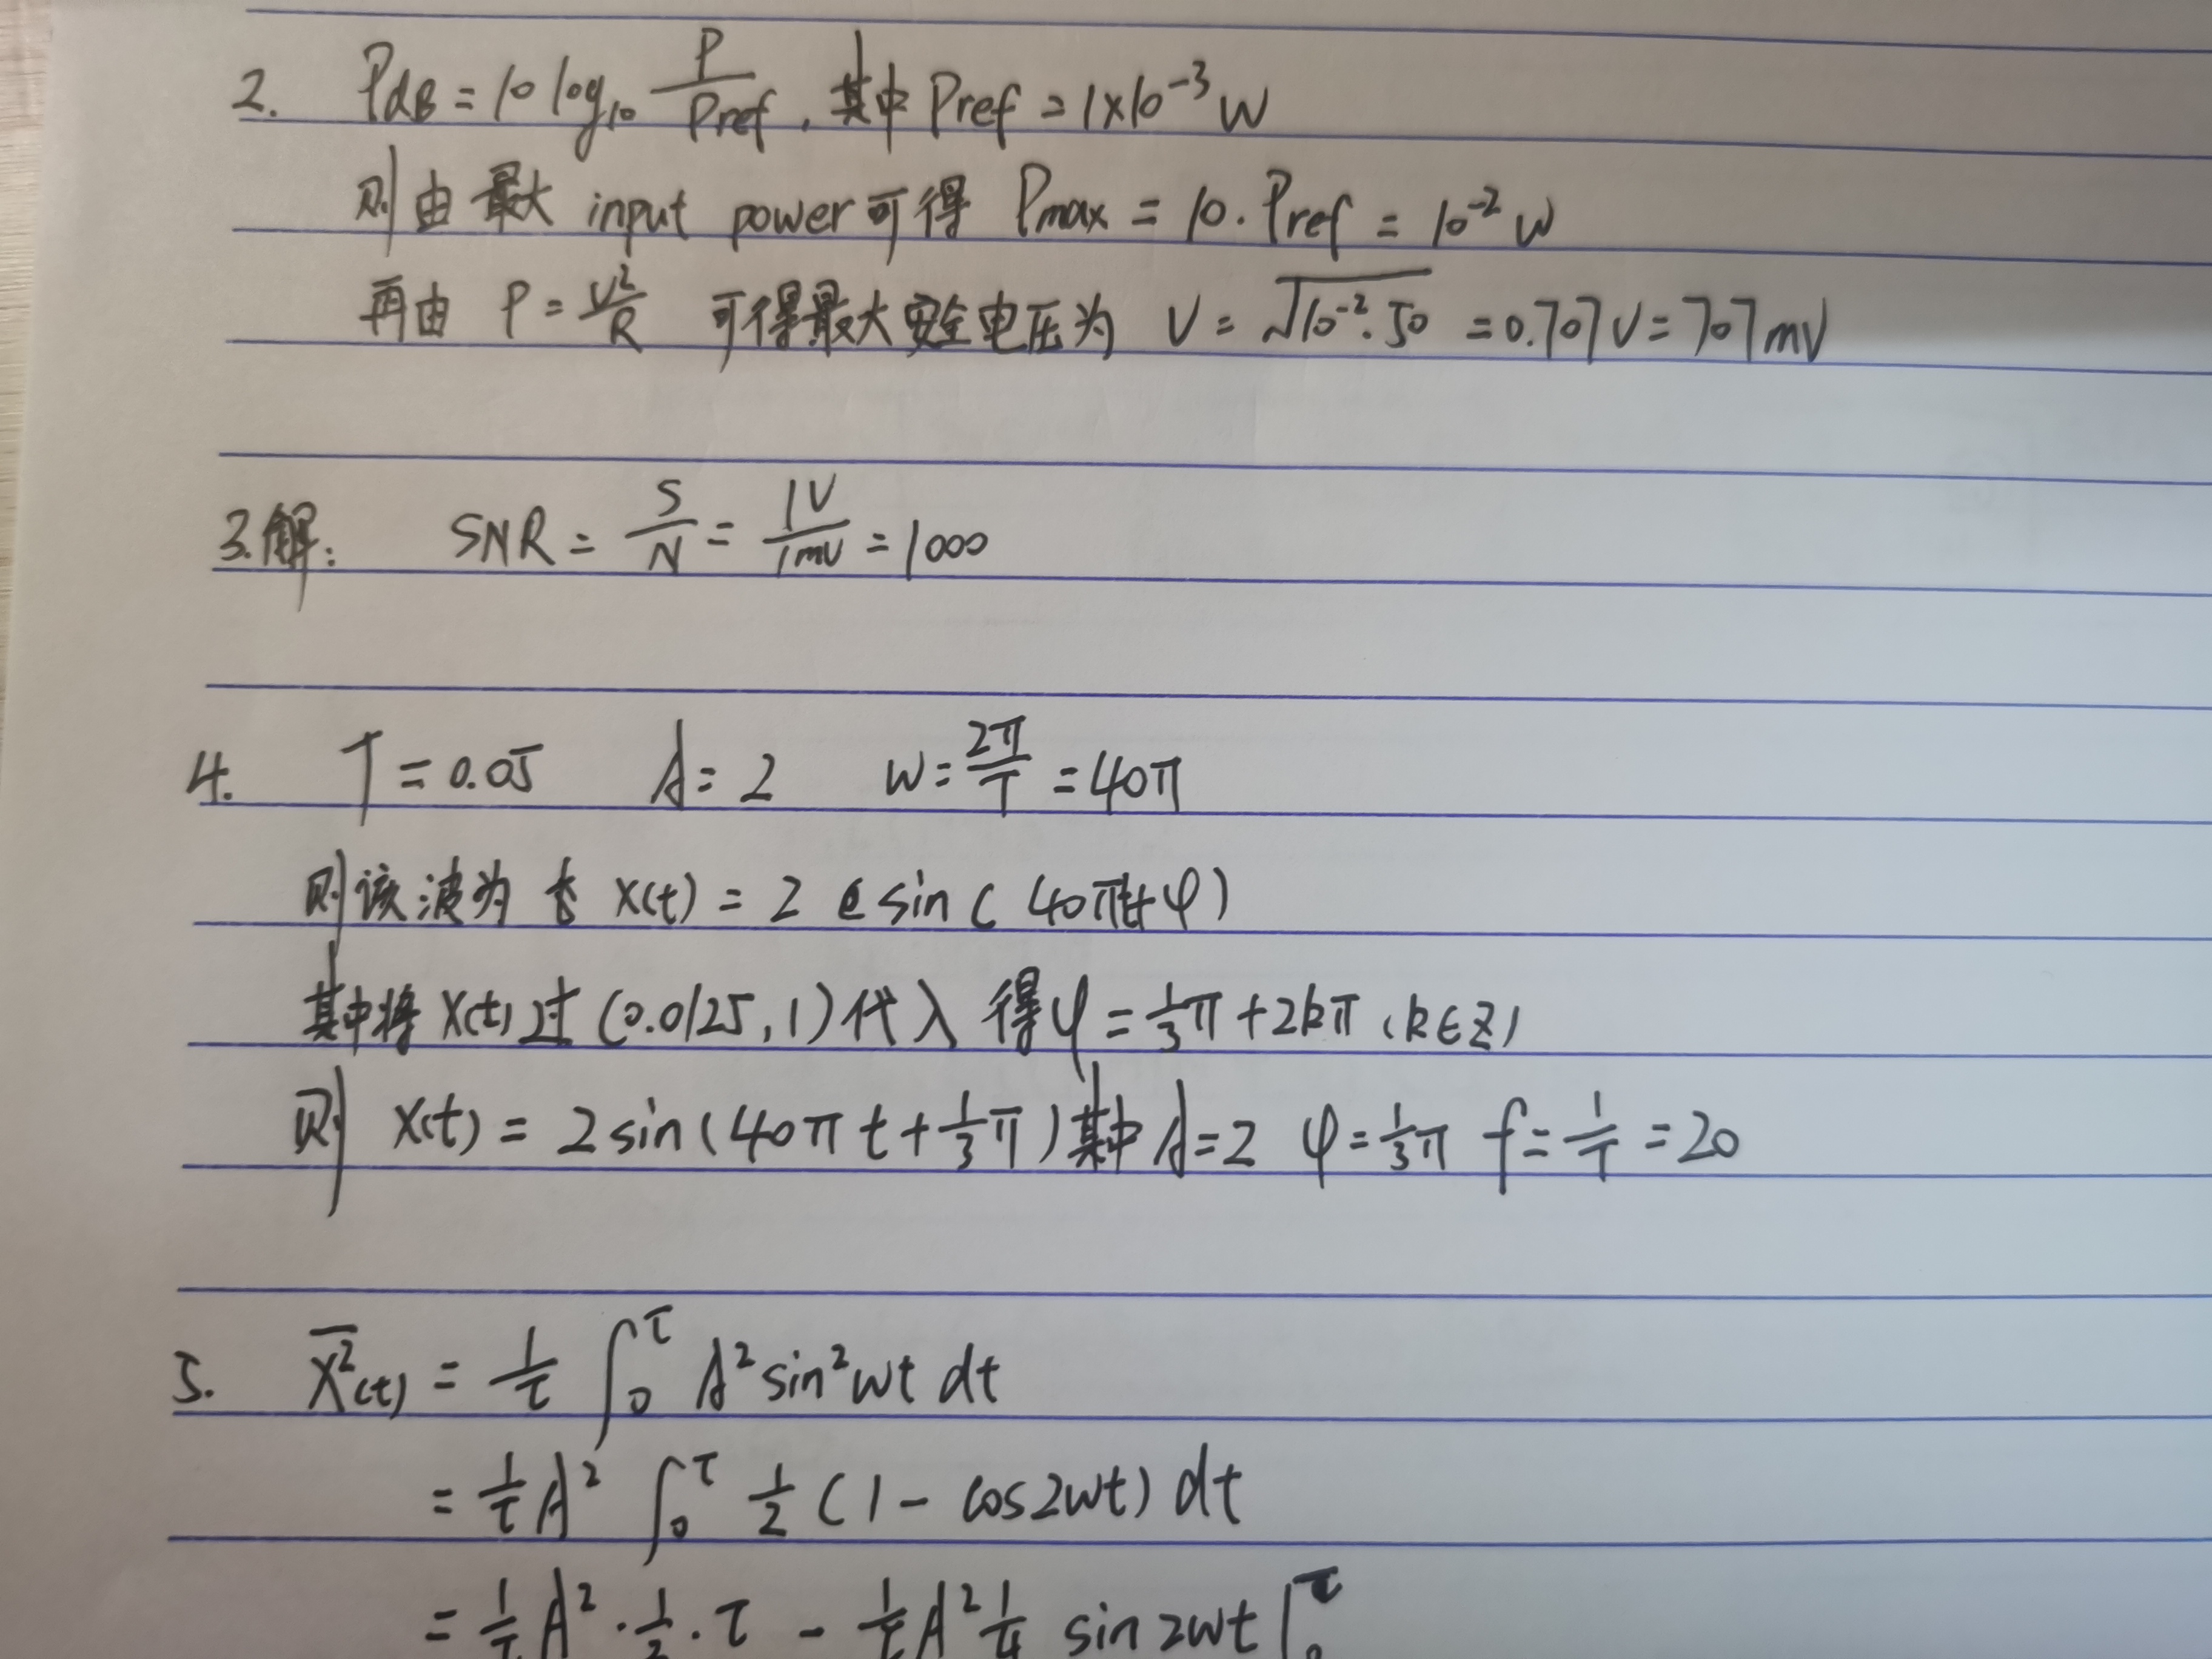 2. PdB = 10 log₁₀ P/Pref , 其中 Pref = 1×10⁻³ W
则由最大 input power 可得 Pmax = 10 · Pref = 10⁻² W
再由 P = V²/R 可得最大安全电压为 V = √(10⁻²·50) = 0.707V = 707mV
3.解: SNR = S/N = 1V/1mV = 1000
4. T = 0.05 A = 2 w = 2π/T = 40π
则该波为 x(t) = 2 sin( 40πt+φ)
其中将 x(t) 过 (0.0125, 1) 代入 得 φ = 1/3π + 2kπ (k∈Z)
则 x(t) = 2 sin(40πt + 1/3π) 其中 A=2 φ=1/3π f = 1/T = 20
5. x̄²(t) = 1/τ ∫₀^τ A² sin²wt dt
= 1/τ A² ∫₀^τ 1/2 (1 - cos2wt) dt
= 1/τ A² · 1/2 · τ - 1/τ A² 1/4 sin2wt |₀^τ